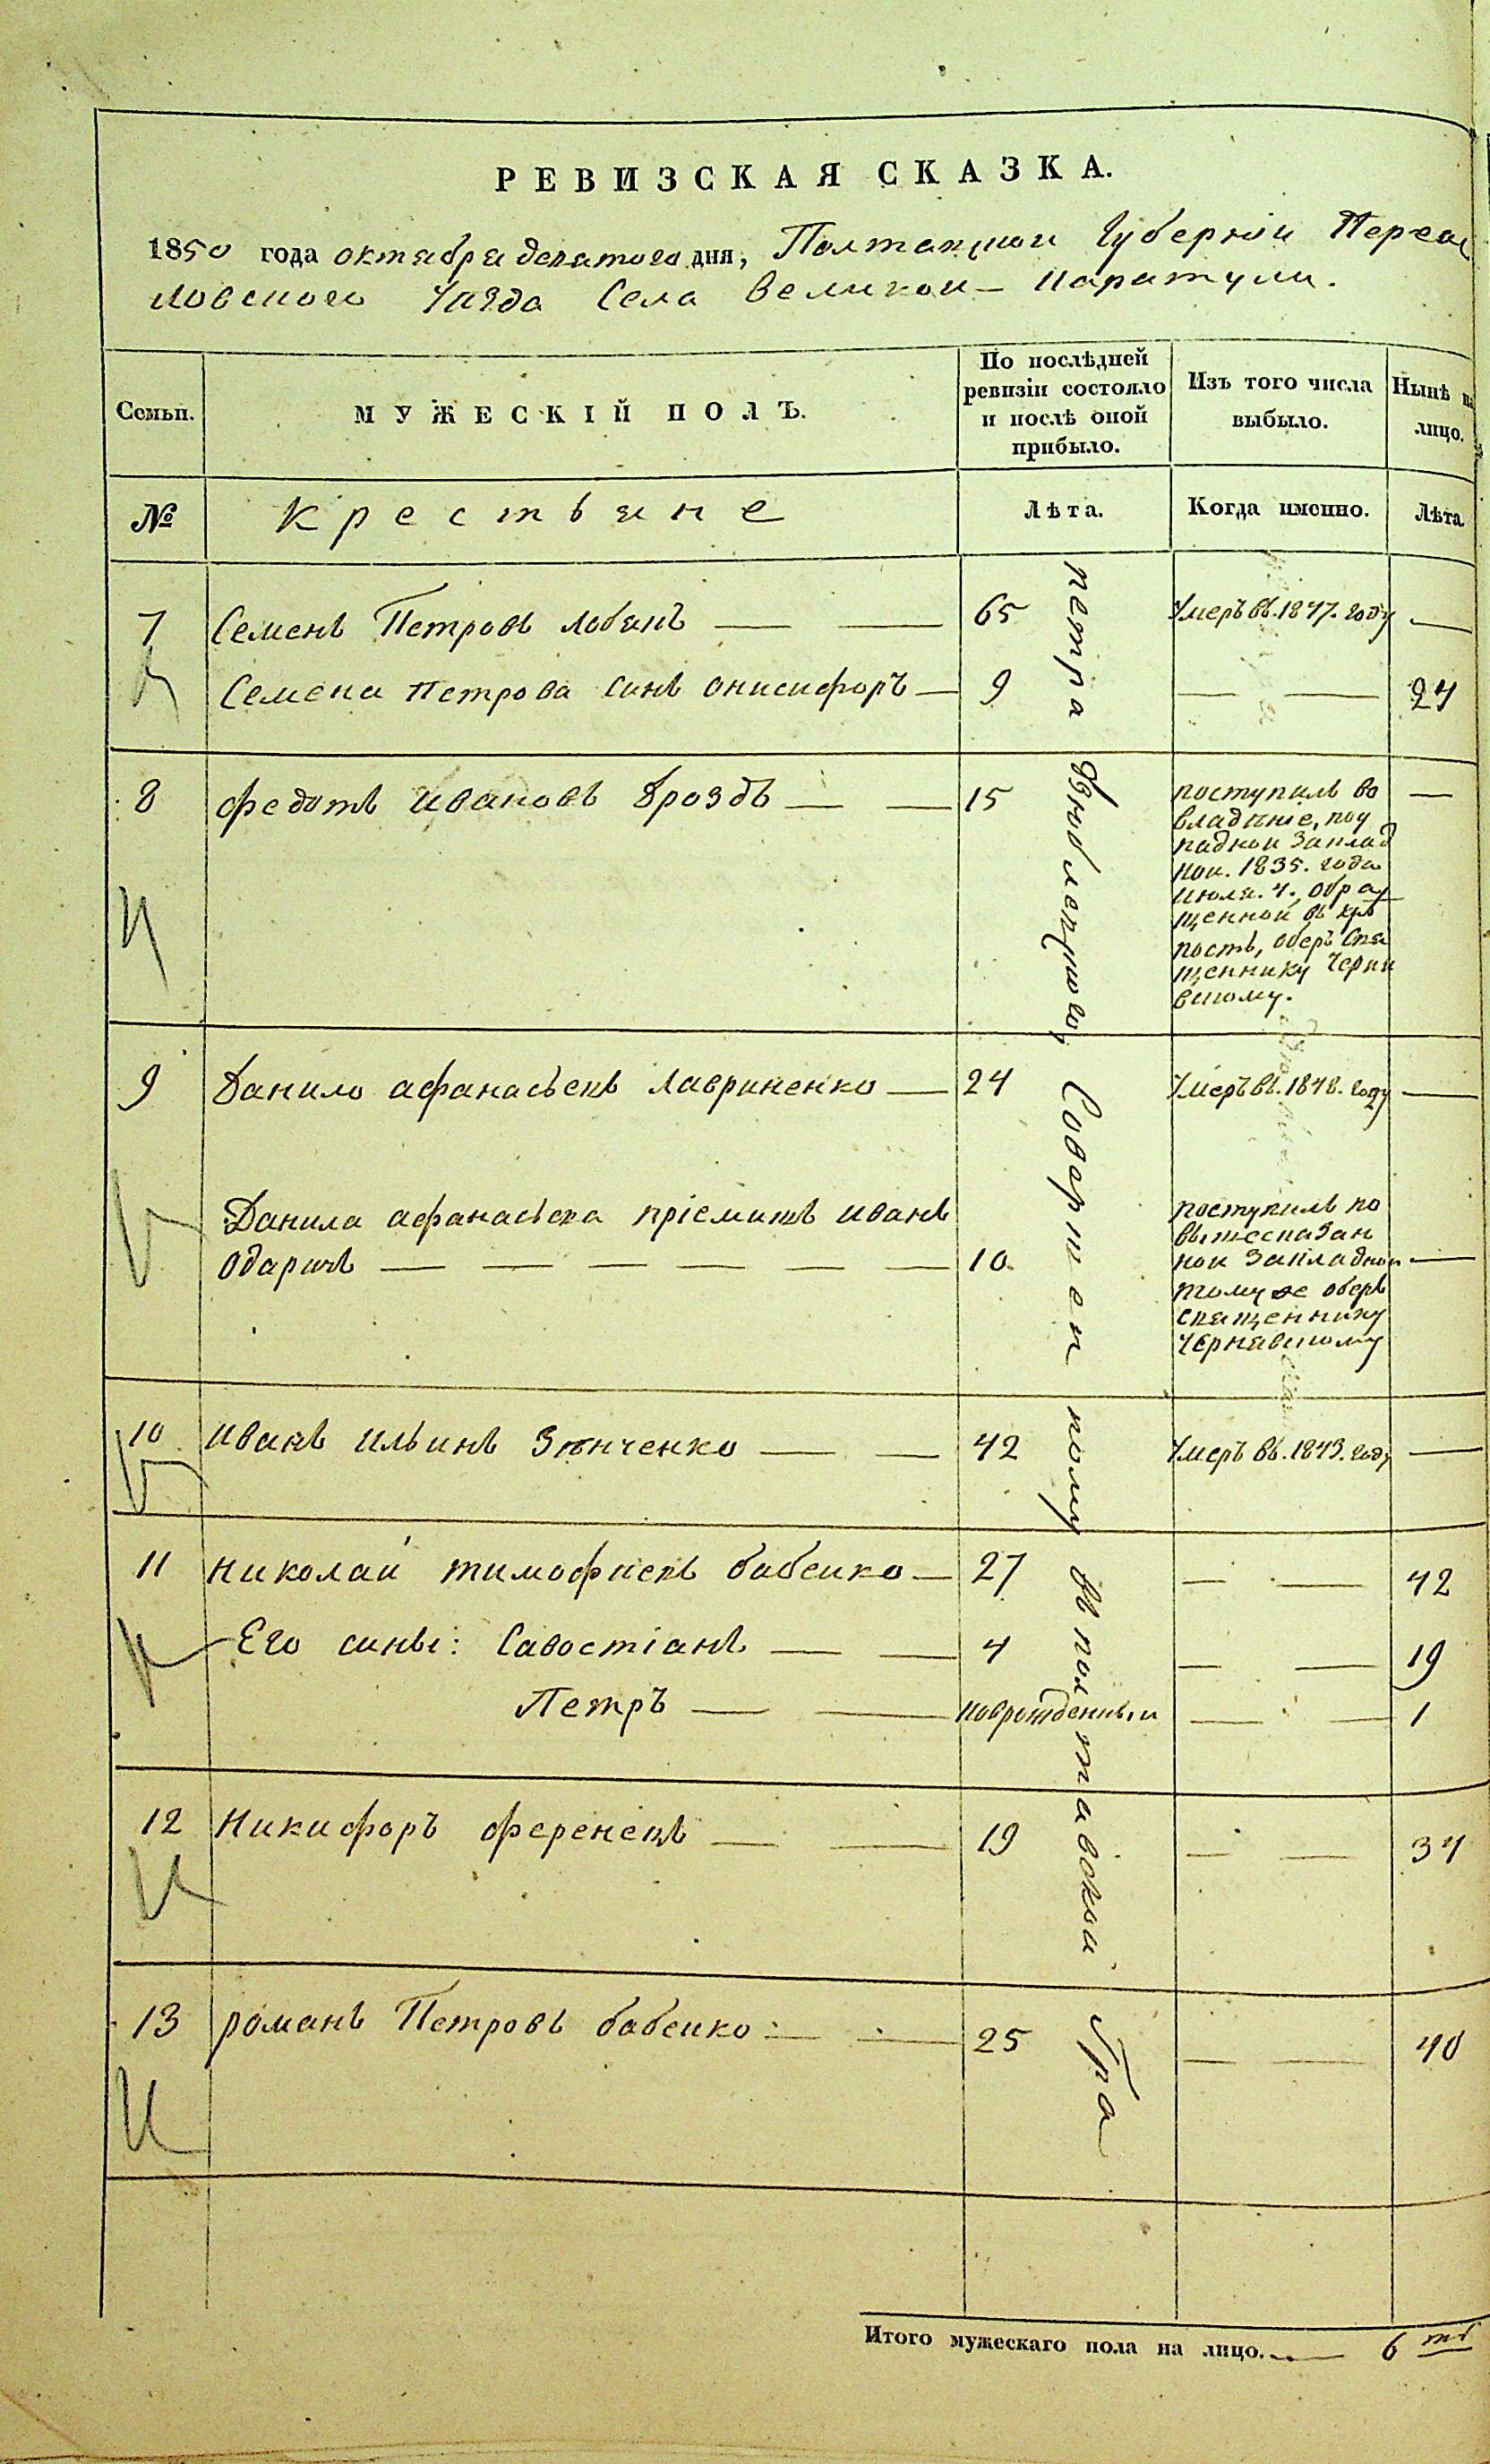 РЕВИЗСКАЯ СКАЗКА.
1850 года октября девятого дня, Полтавской Губернии Переяс
ловского Уезда Села Великои - Каратули.
Семьи.
МУЖЕСКІЙ ПОЛЪ.
По послѣдней
ревизіи состояло
и послѣ оной
прибыло.
Изъ того числа
выбыло.
Нынѣ на
лицо.
№
Крестьяне
Лѣта.
Когда именно.
Лѣта.
7 Семенъ Петровъ Лобанъ — — 65 Умеръ въ. 1847. году —
Семена Петрова Синъ Онисифоръ — 9 — — 24
8 Федотъ Ивановъ Дроздъ — — 15 —
поступилъ во
владѣніе, по
заклад
ной. 1835. года
июля. 4. обра
щенной въ крѣ
пость, оберъ Свя
щеннику Черня
вскому.
9 Данило Афанасьевъ Лавриненко — 24 Умеръ въ. 1848. году —
Данила Афанасьева пріемишъ Иванъ
Одаричъ — — — — — — 10. —
поступилъ по
вышесказан
ной Закладной
тому же оберъ
священнику
Чернявскому
10 Иванъ Ильинъ Зѣнченко — — 42 Умеръ въ. 1843. году —
11 Николай Тимофиевъ Бабенко — 27 — — 42
Его сины: Савостіанъ — — 4 — — 19
Петръ — — новрожденный — — 1
12 Никифоръ Ференецъ — — 19 — — 34
13 Романъ Петровъ Бабенко — — 25 — — 40
Петра
тому
Полтавski
Итого мужескаго пола на лицо. — 6 ть